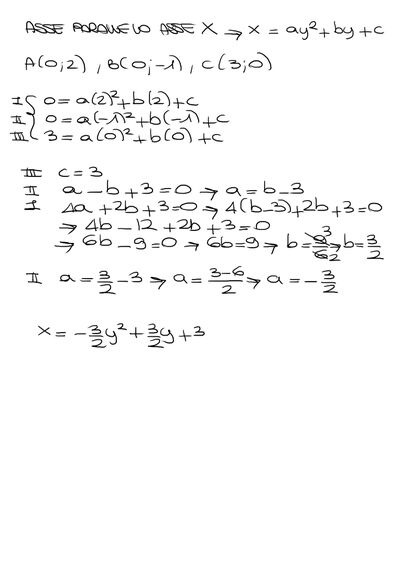 ASSE PARALLELO ASSE X → x = ay² + by + c
A(0;2), B(0;-1), C(3;0)
I { 0 = a(2)² + b(2) + c
II { 0 = a(-1)² + b(-1) + c
III { 3 = a(0)² + b(0) + c
III c = 3
II a - b + 3 = 0 → a = b - 3
I 4a + 2b + 3 = 0 → 4(b-3) + 2b + 3 = 0
→ 4b - 12 + 2b + 3 = 0
→ 6b - 9 = 0 → 6b = 9 → b = 9/6 3 2 → b = 3/2
II a = 3/2 - 3 → a = (3-6)/2 → a = -3/2
x = -3/2 y² + 3/2 y + 3